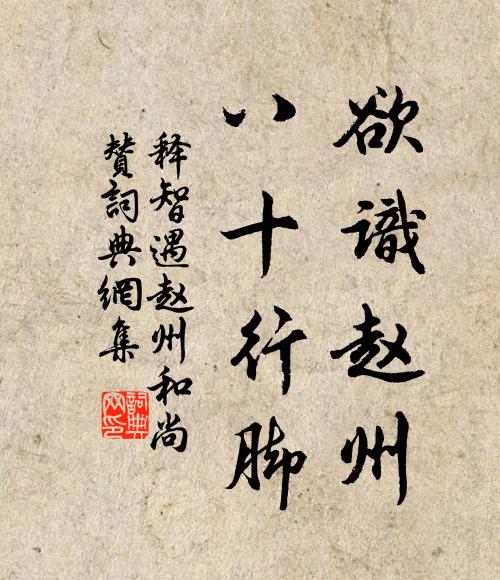 欲識赵州
八十行脚
释智遇赵州和尚
贊詞典網集
詞典
网印